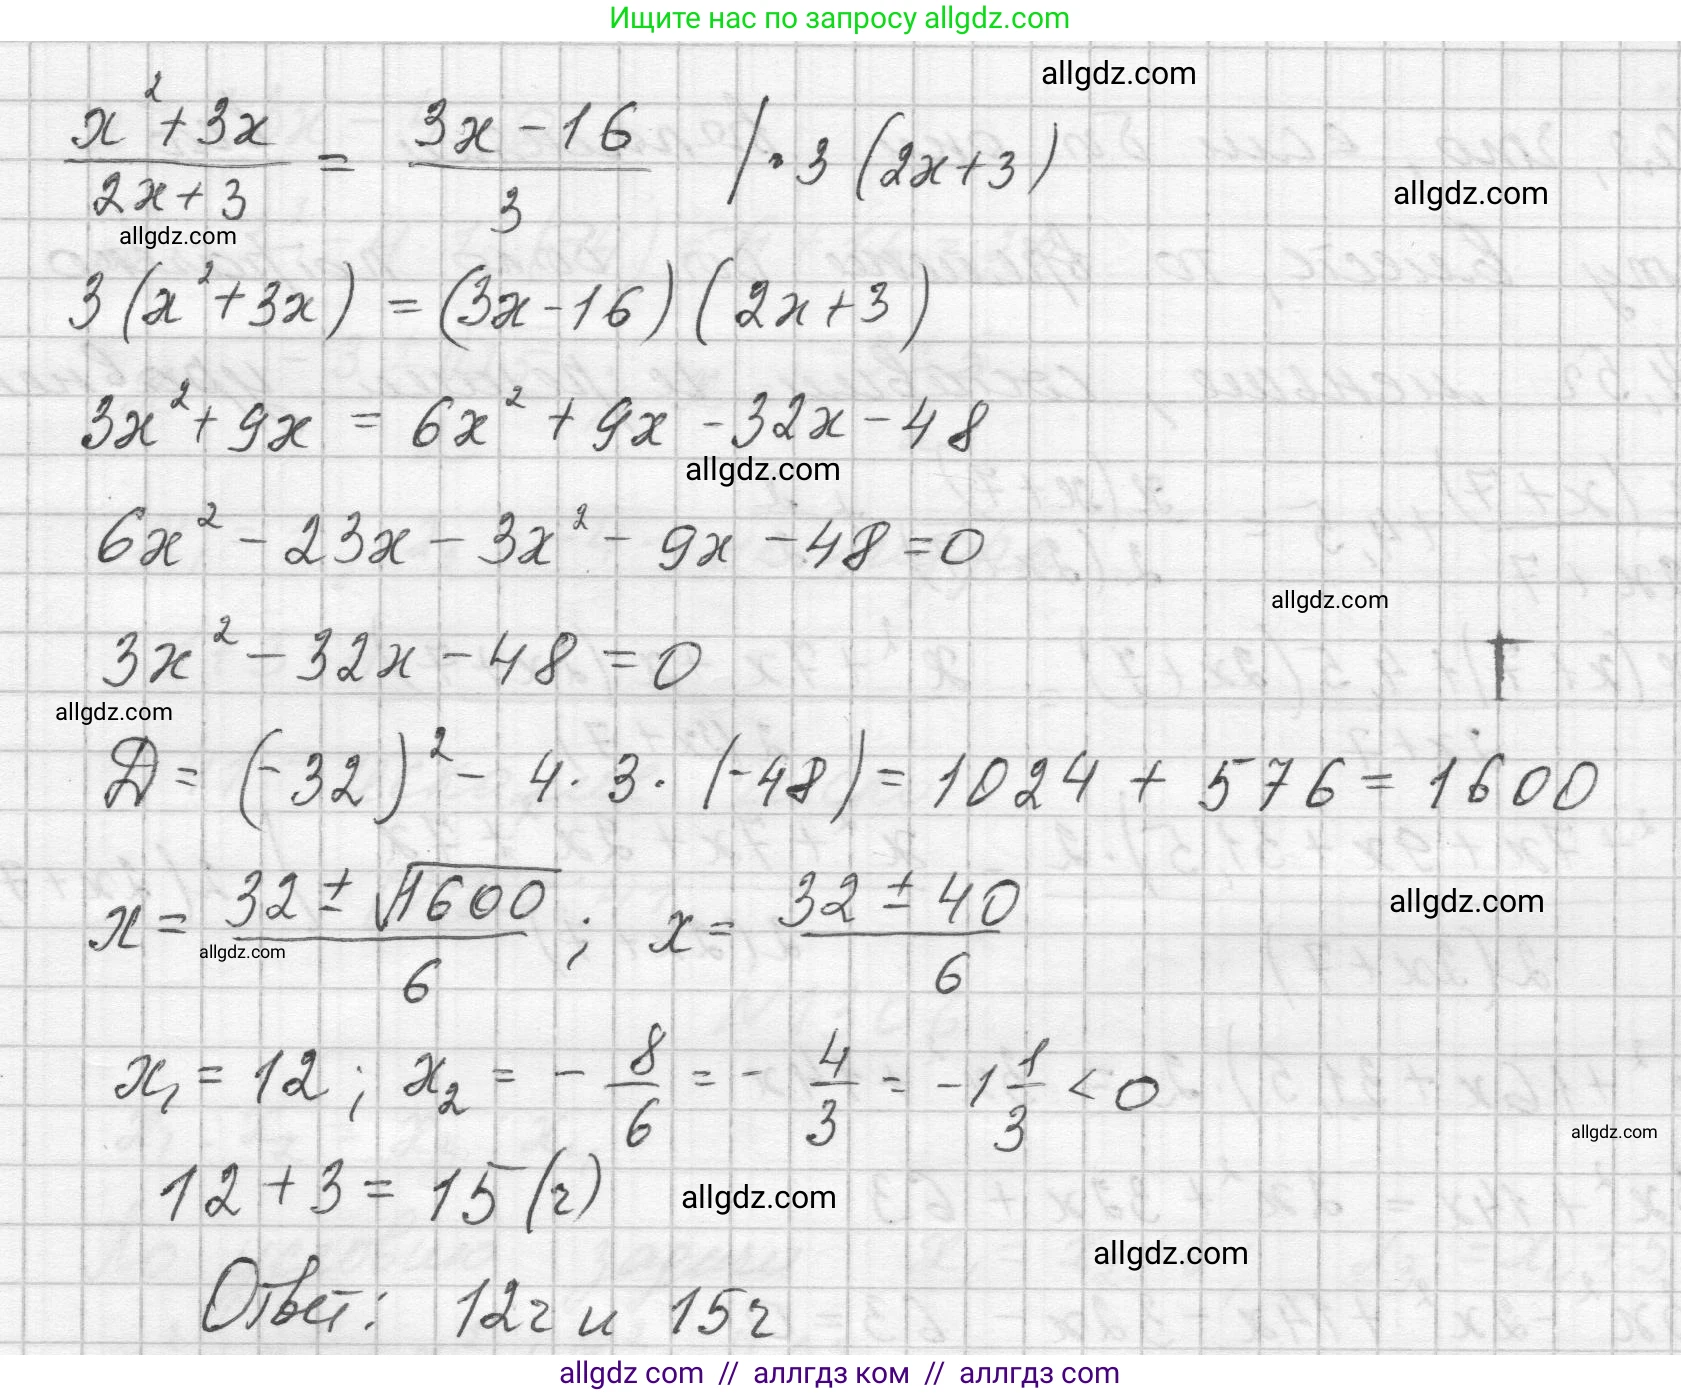 Ищите нас по запросу allgdz.com
allgdz.com
(x² + 3x)/(2x + 3) = (3x - 16)/3 | · 3 (2x + 3)
allgdz.com
allgdz.com
3 (x² + 3x) = (3x - 16) (2x + 3)
3x² + 9x = 6x² + 9x - 32x - 48
allgdz.com
6x² - 23x - 3x² - 9x - 48 = 0
allgdz.com
3x² - 32x - 48 = 0
allgdz.com
Д = (-32)² - 4 · 3 · (-48) = 1024 + 576 = 1600
x = (32 ± √1600)/6 ; x = (32 ± 40)/6
allgdz.com
allgdz.com
x₁ = 12 ; x₂ = - 8/6 = - 4/3 = -1 1/3 < 0
allgdz.com
12 + 3 = 15 (ч)
allgdz.com
allgdz.com
Ответ: 12ч и 15ч
allgdz com // аллгдз ком // аллгдз com